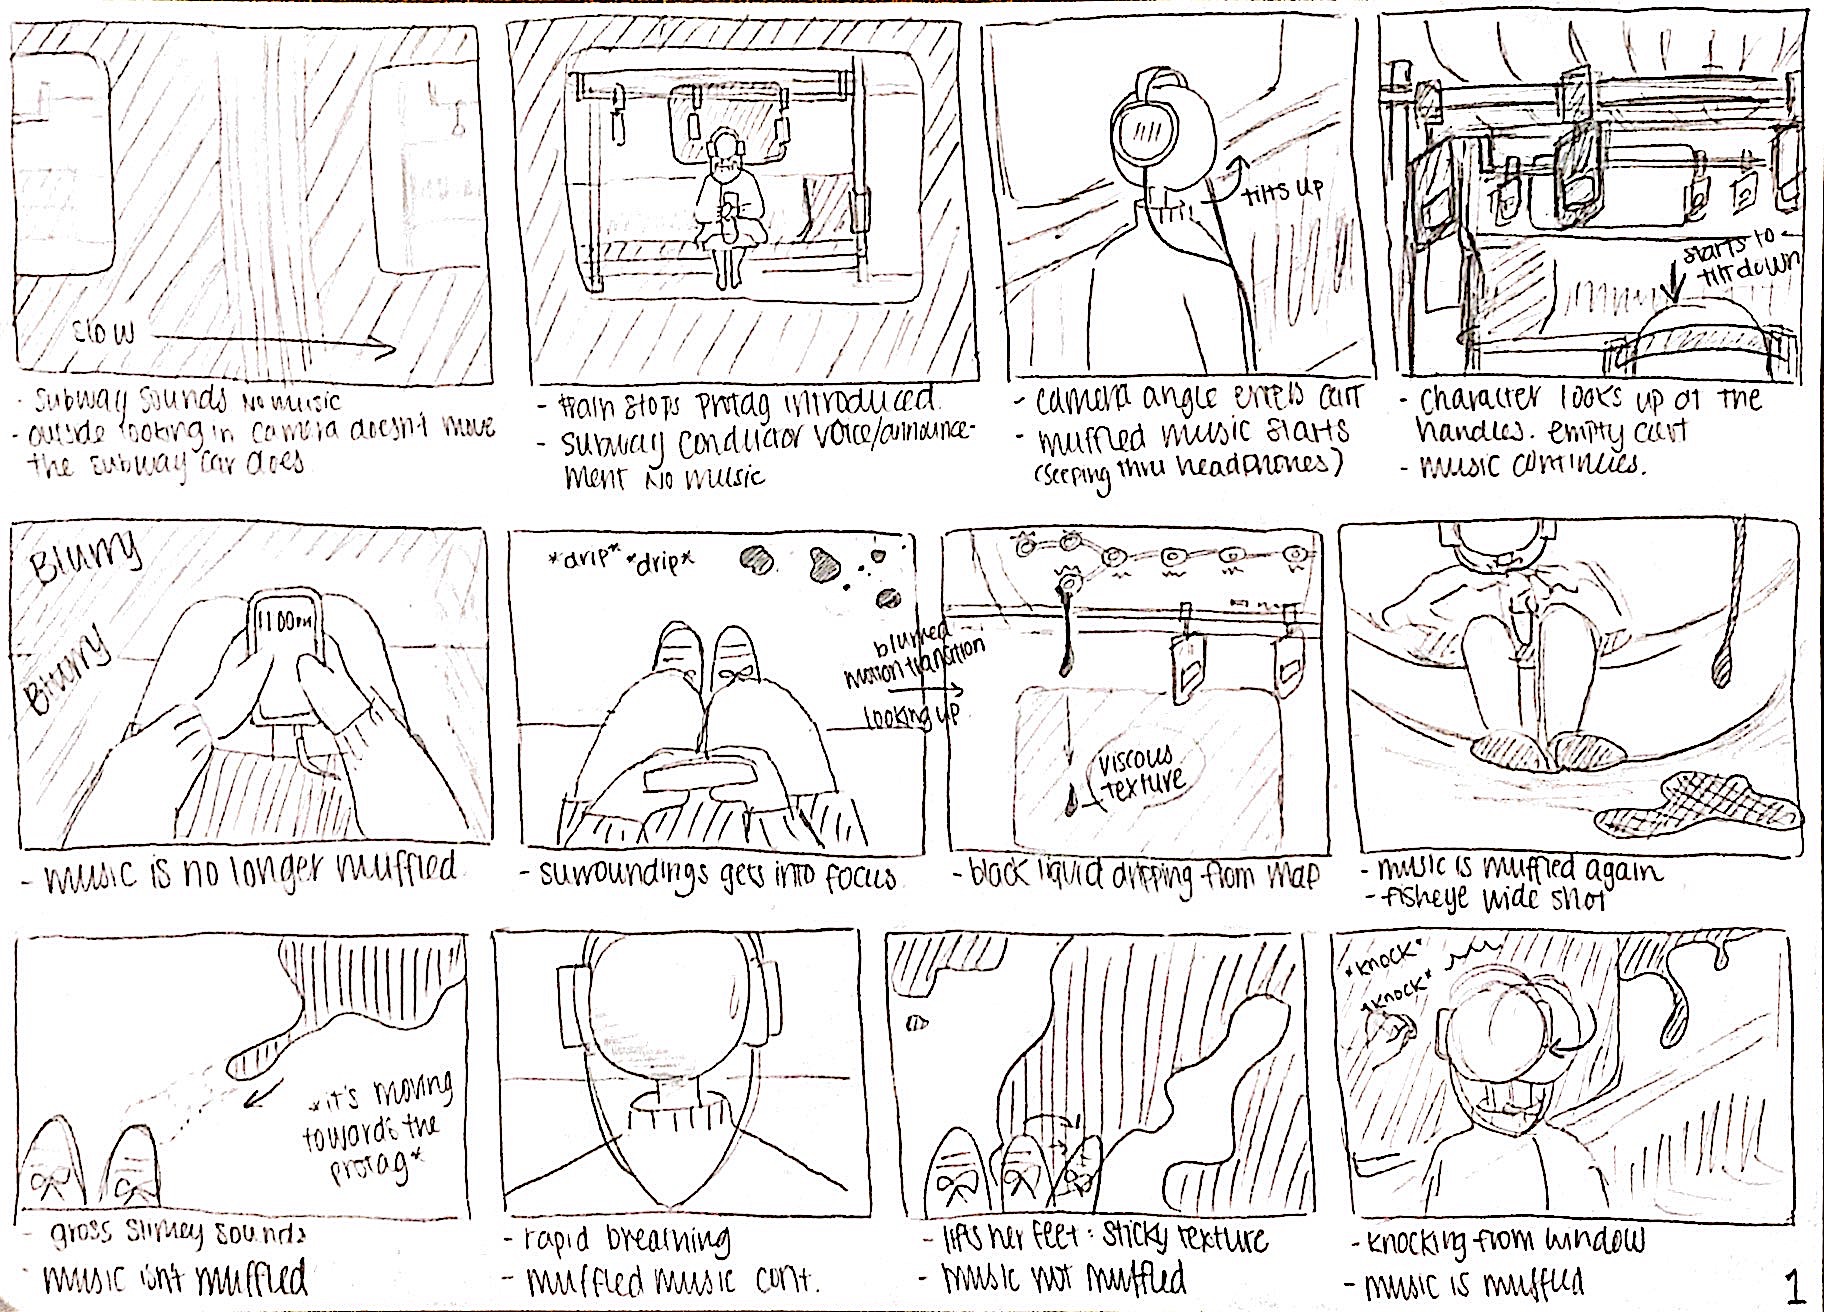 slow
- subway sounds no music
- outside looking in camera doesn't move
the subway car does
- train stops protag introduced.
- subway conductor voice/announce-
ment no music
tilts up
- camera angle enters cart
- muffled music starts
(seeping thru headphones)
starts to
tilt down
- character looks up at the
handles. empty cart
- music continues.
Blurry
Blurry
11:00PM
- music is no longer muffled.
*drip* *drip*
- surroundings gets into focus
blurred
motion transition
looking up
viscous
texture
- black liquid dripping from map
- music is muffled again
- fisheye wide shot
*it's moving
towards the
protag*
- gross slimey sounds
- music isn't muffled
- rapid breathing
- muffled music cont.
- lifts her feet: sticky texture
- music not muffled
*knock*
*knock*
- knocking from window
- music is muffled
1